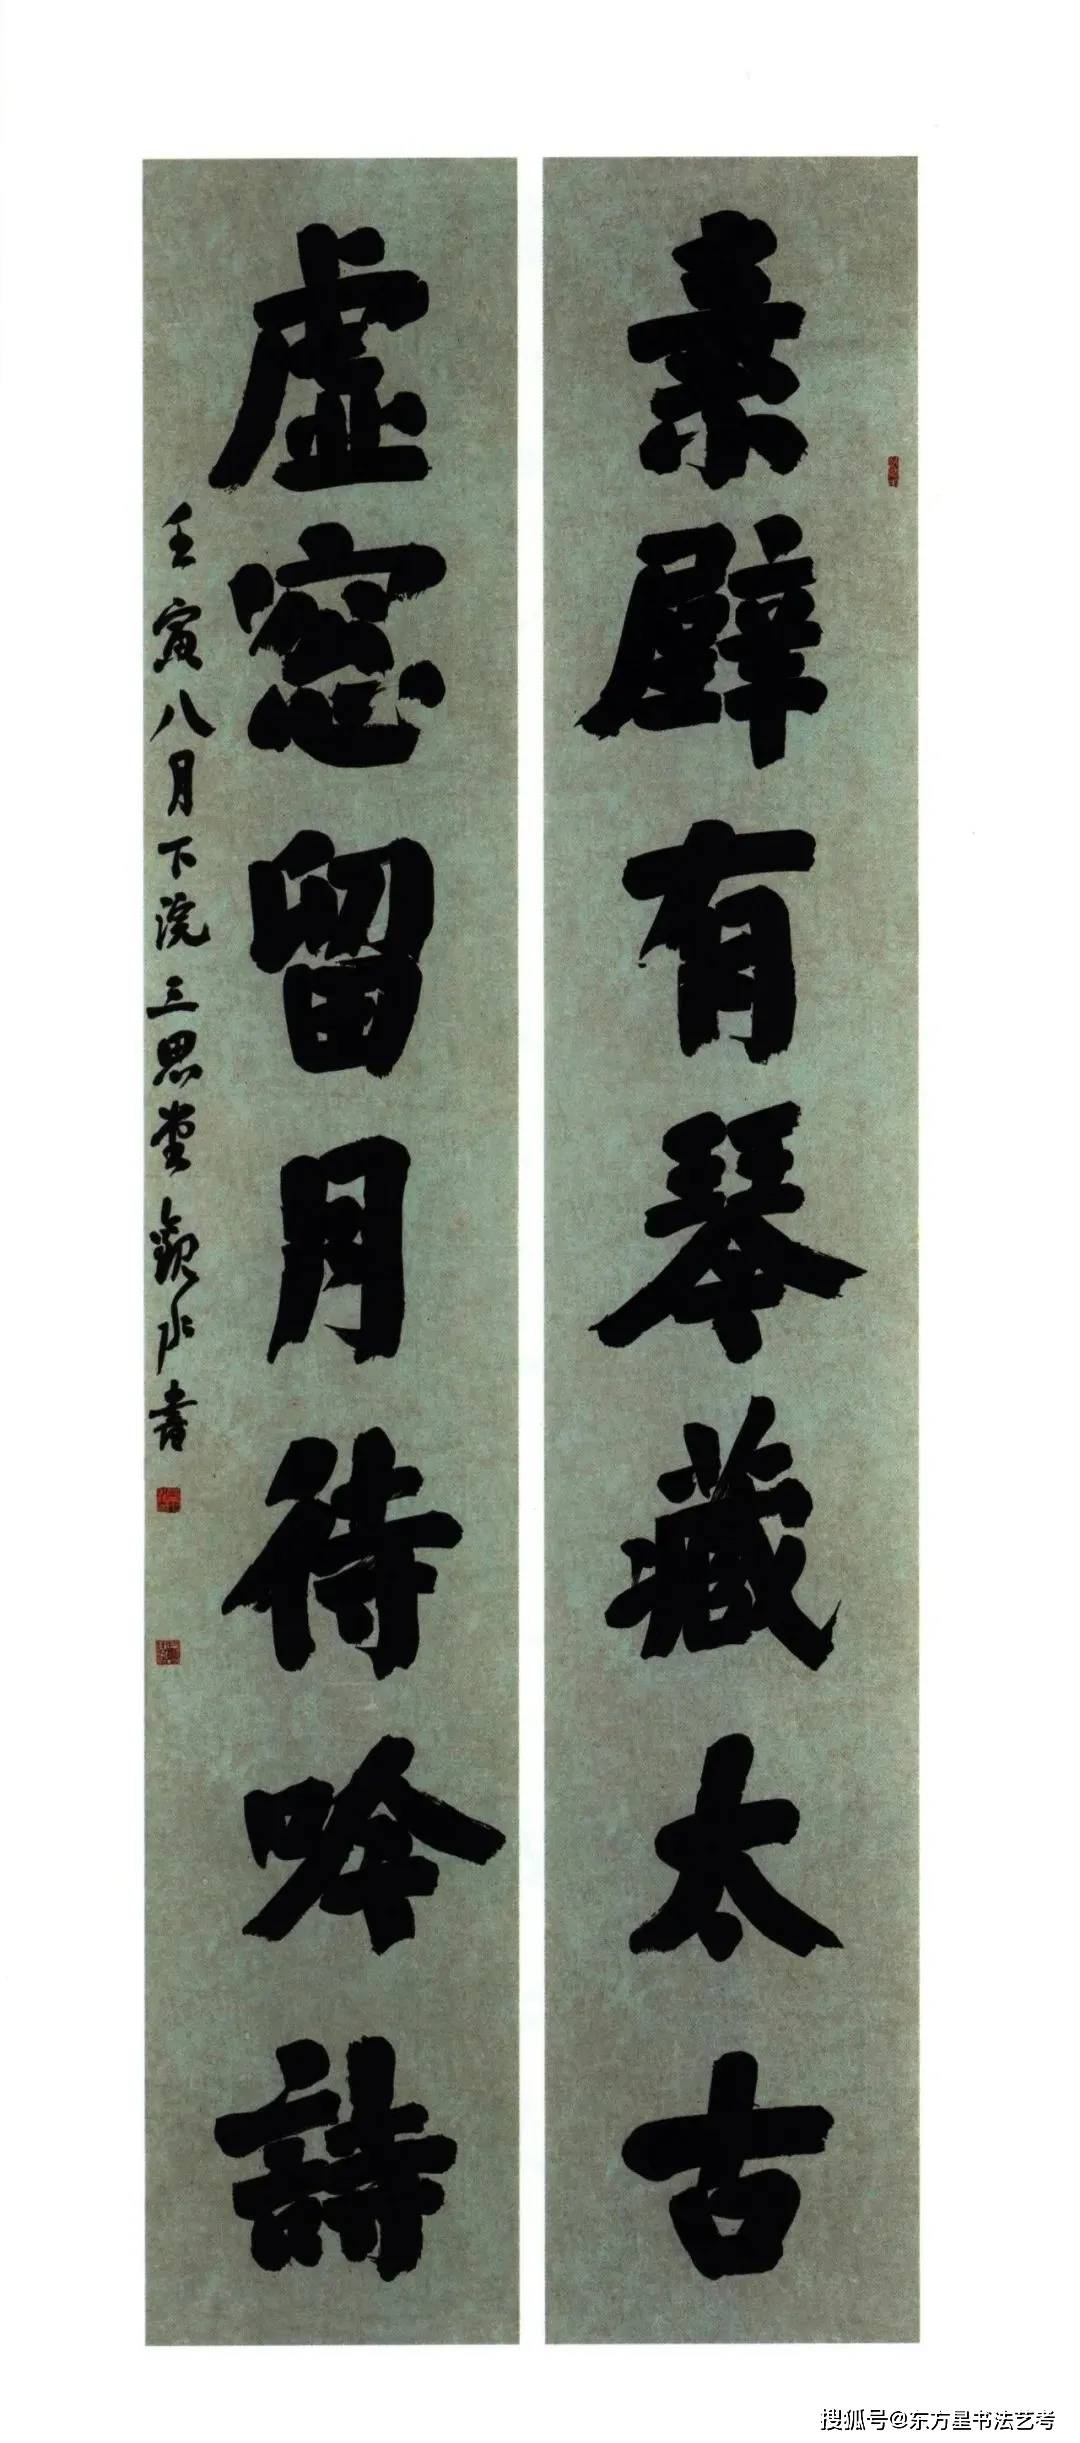 素壁有琴藏太古
虚窓留月待吟詩
壬寅八月下浣三思堂観水書
搜狐号@东方星书法艺考